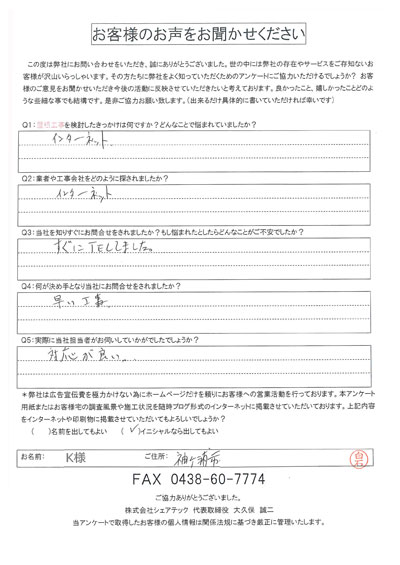 お客様のお声をお聞かせください
この度は弊社にお問い合わせをいただき、誠にありがとうございました。世の中には弊社の存在やサービスをご存知ないお
客様が沢山いらっしゃいます。その方たちに弊社をよく知っていただくためのアンケートにご協力いただけるでしょうか？ お客
様のご意見をお聞かせいただき今後の活動に反映させていただきたいと考えております。良かったこと、嬉しかったことどのよ
うな些細な事でも結構です。是非ご協力お願い致します。（出来るだけ具体的に書いていただければ幸いです）
Q1：屋根工事を検討したきっかけは何ですか？どんなことで悩まれていましたか？
インターネット
Q2：業者や工事会社をどのように探されましたか？
インターネット
Q3：当社を知りすぐにお問合せをされましたか？もし悩まれたとしたらどんなことがご不安でしたか？
すぐにTELしました。
Q4：何が決め手となり当社にお問合せをされましたか？
早い工事
Q5：実際に当社担当者がお伺いしていかがでしたでしょうか？
対応が良い。
＊弊社は広告宣伝費を極力かけない為にホームページだけを頼りにお客様への営業活動を行っております。本アンケート
用紙またはお客様宅の調査風景や施工状況を随時ブログ形式のインターネットに掲載させていただいております。上記内容
をインターネットや印刷物に掲載させていただいてもよろしいでしょうか？
（　　）名前を出してもよい　（✓）イニシャルなら出してもよい
お名前： K様 ご住所： 袖ケ浦市 白石
FAX 0438-60-7774
ご協力ありがとうございました。
株式会社シェアテック 代表取締役 大久保 誠二
当アンケートで取得したお客様の個人情報は関係法規に基づき厳正に管理いたします。